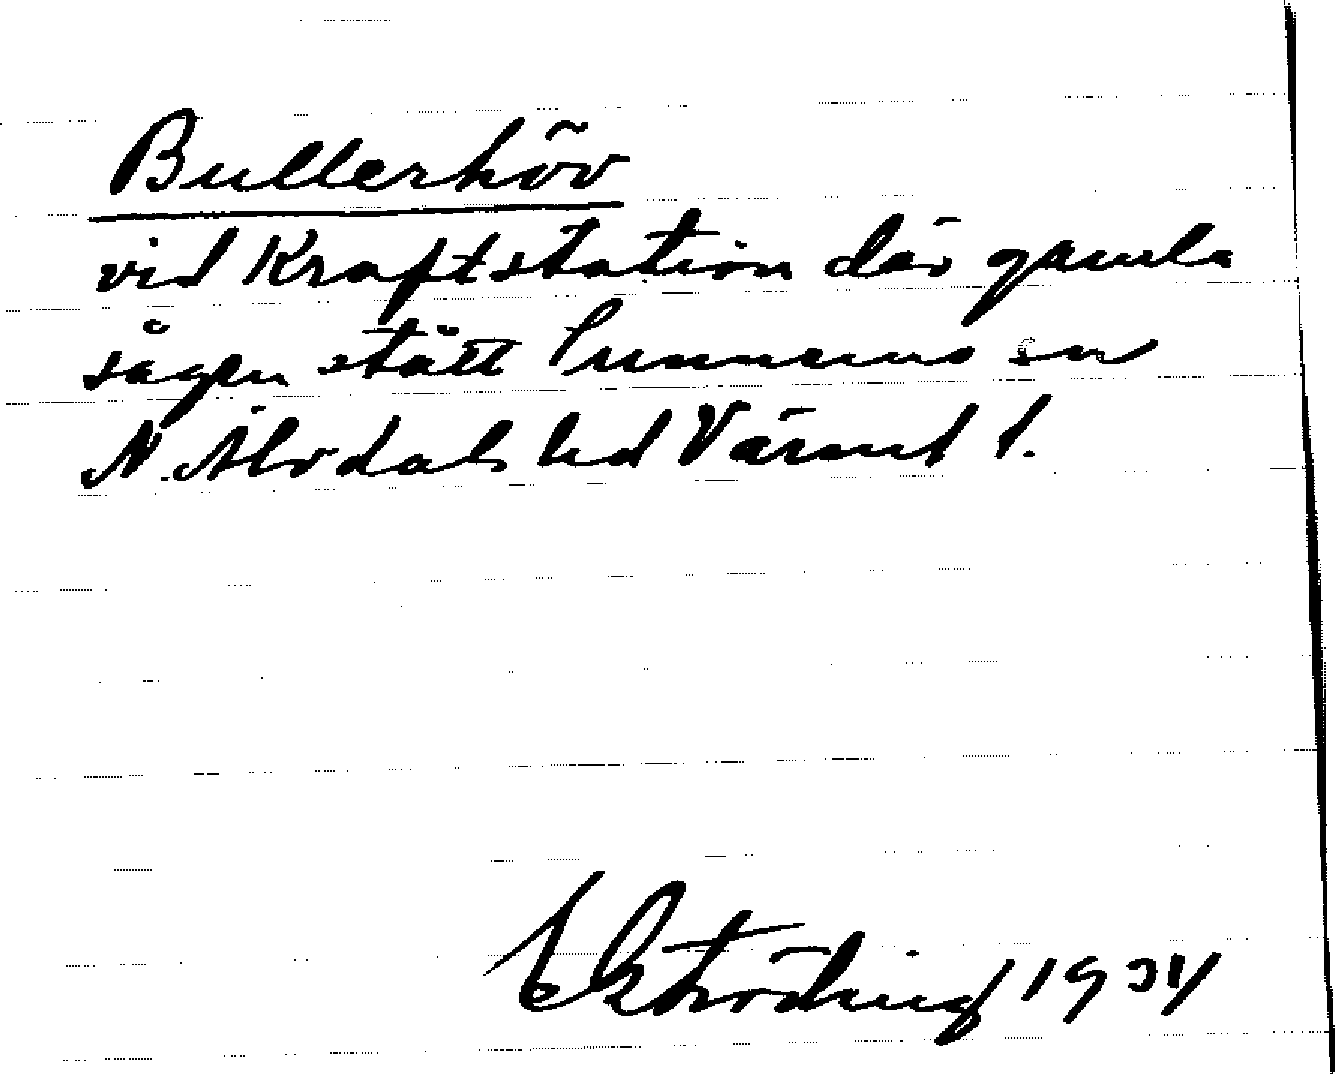 Bullerhöv
vid Kraftstation där gamla
sågen stått Sunnemo sn
N. Älvdals hd Värml l.
1934